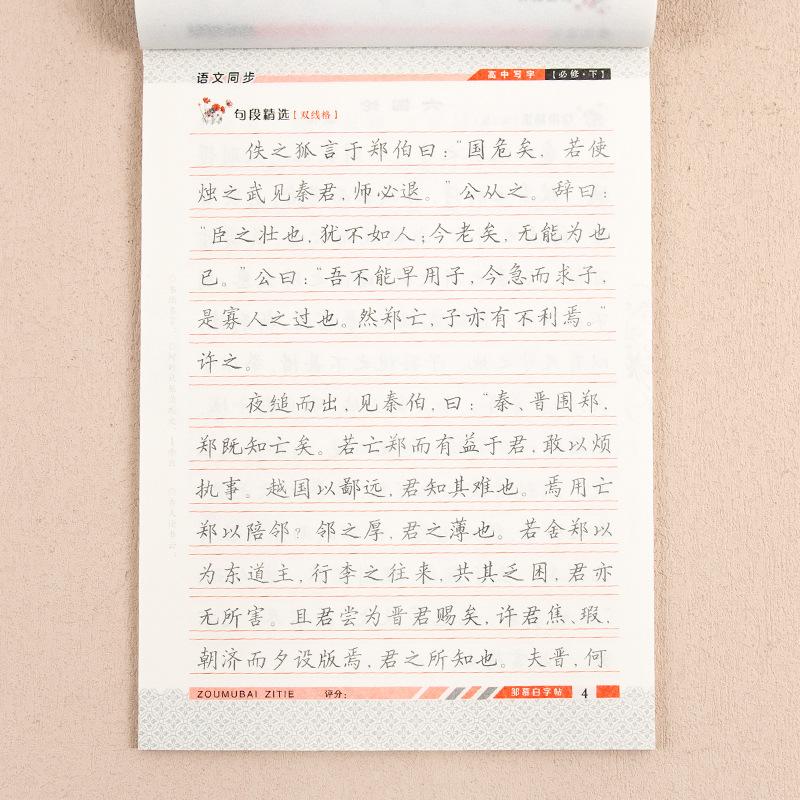 语文同步
高中写字【必修·下】
句段精选【双线格】
佚之狐言于郑伯曰：“国危矣，若使
烛之武见秦君，师必退。”公从之。辞曰：
“臣之壮也，犹不如人；今老矣，无能为也
已。”公曰：“吾不能早用子，今急而求子，
是寡人之过也。然郑亡，子亦有不利焉。”
许之。
夜缒而出，见秦伯，曰：“秦、晋围郑，
郑既知亡矣。若亡郑而有益于君，敢以烦
执事。越国以鄙远，君知其难也。焉用亡
郑以陪邻？邻之厚，君之薄也。若舍郑以
为东道主，行李之往来，共其乏困，君亦
无所害。且君尝为晋君赐矣，许君焦、瑕，
朝济而夕设版焉，君之所知也。夫晋，何
ZOUMUBAI ZITIE 评分： 邹慕白字帖 4